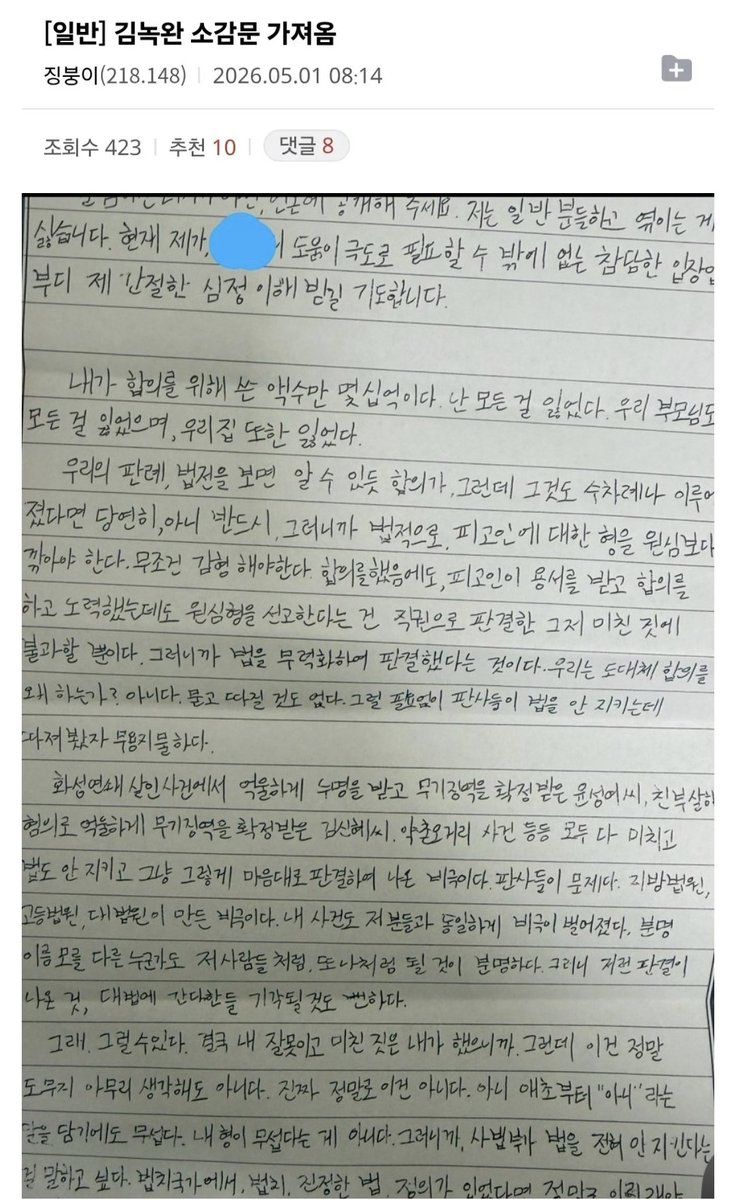 [일반] 김녹완 소감문 가져옴
징붕이(218.148) | 2026.05.01 08:14
조회수 423 | 추천 10 | 댓글 8
공개해 주세요. 저는 일반 분들하고 엮이는 게
싫습니다. 현재 제가, 도움이 극도로 필요할 수 밖에 없는 참담한 입장입
부디 제 간절한 심정 이해 받길 기도합니다.
내가 합의를 위해 쓴 액수만 몇십억이다. 난 모든 걸 잃었다. 우리 부모님도
모든 걸 잃었으며, 우리집 또한 잃었다.
우리의 판례, 법전을 보면 알 수 있듯 합의가, 그런데 그것도 수차례나 이루어
졌다면 당연히, 아니 반드시, 그러니까 법적으로, 피고인에 대한 형을 원심보다
깎아야 한다. 무조건 감형 해야한다. 합의를했음에도, 피고인이 용서를 받고 합의를
하고 노력했는데도 원심형을 선고한다는 건 직권으로 판결한 그저 미친 짓에
불과할 뿐이다. 그러니까 법을 무력화하여 판결했다는 것이다. 우리는 도대체 합의를
왜 하는가? 아니다. 묻고 따질 것도 없다. 그럴 필요없이 판사들이 법을 안 지키는데
따져봤자 무용지물하다.
화성연쇄 살인사건에서 억울하게 누명을 받고 무기징역을 확정받은 윤성여씨, 친부살해
혐의로 억울하게 무기징역을 확정받은 김신혜씨. 약촌오거리 사건 등등 모두 다 미치고
법도 안 지키고 그냥 그렇게 마음대로 판결하여 나온 비극이다. 판사들이 문제다. 지방법원,
고등법원, 대법원이 만든 비극이다. 내 사건도 저 분들과 동일하게 비극이 벌어졌다. 분명
이름 모를 다른 누군가도 저 사람들 처럼, 또 나처럼 될 것이 분명하다. 그러니 저런 판결이
나온 것, 대법에 간다한들 기각될것도 뻔하다.
그래. 그럴수있다. 결국 내 잘못이고 미친 짓은 내가 했으니까. 그런데 이건 정말
도무지 아무리 생각해도 아니다. 진짜 정말로 이건 아니다. 아니 애초부터 "아니"라는
말을 담기에도 무섭다. 내 형이 무섭다는 게 아니다. 그러니까, 사법부가 법을 전혀 안 지킨다는
걸 말하고 싶다. 법치국가에서, 법치, 진정한 법, 정의가 있었다면 정말로